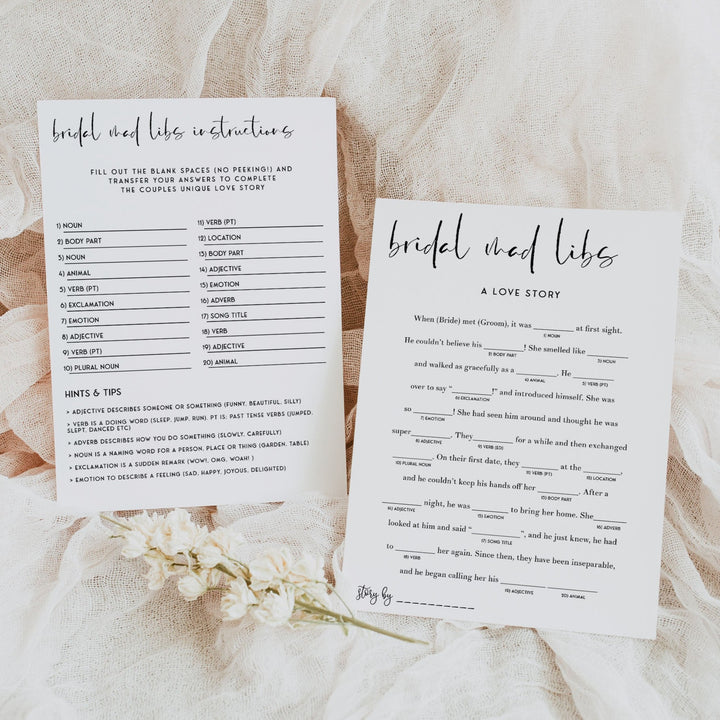 bridal mad libs instructions
FILL OUT THE BLANK SPACES (NO PEEKING!) AND
TRANSFER YOUR ANSWERS TO COMPLETE
THE COUPLES UNIQUE LOVE STORY
1) NOUN
2) BODY PART
3) NOUN
4) ANIMAL
5) VERB (PT)
6) EXCLAMATION
7) EMOTION
8) ADJECTIVE
9) VERB (PT)
10) PLURAL NOUN
11) VERB (PT)
12) LOCATION
13) BODY PART
14) ADJECTIVE
15) EMOTION
16) ADVERB
17) SONG TITLE
18) VERB
19) ADJECTIVE
20) ANIMAL
HINTS & TIPS
> ADJECTIVE DESCRIBES SOMEONE OR SOMETHING (FUNNY, BEAUTIFUL, SILLY)
> VERB IS A DOING WORD (SLEEP, JUMP, RUN). PT IS: PAST TENSE VERBS (JUMPED,
SLEPT, DANCED ETC)
> ADVERB DESCRIBES HOW YOU DO SOMETHING (SLOWLY, CAREFULLY)
> NOUN IS A NAMING WORD FOR A PERSON, PLACE OR THING (GARDEN, TABLE)
> EXCLAMATION IS A SUDDEN REMARK (WOW!, OMG, WOAH! )
> EMOTION TO DESCRIBE A FEELING (SAD, HAPPY, JOYOUS, DELIGHTED)
bridal mad libs
A LOVE STORY
When (Bride) met (Groom), it was __________ at first sight.
1) NOUN
He couldn't believe his __________! She smelled like __________
2) BODY PART 3) NOUN
and walked as gracefully as a __________. He __________
4) ANIMAL 5) VERB (PT)
over to say "__________!" and introduced himself. She was
6) EXCLAMATION
so __________! She had seen him around and thought he was
7) EMOTION
super__________. They __________ for a while and then exchanged
8) ADJECTIVE 9) VERB (SD)
__________. On their first date, they __________ at the __________,
10) PLURAL NOUN 11) VERB (PT) 12) LOCATION
and he couldn't keep his hands off her __________. After a
13) BODY PART
__________ night, he was __________ to bring her home. She __________
14) ADJECTIVE 15) EMOTION 16) ADVERB
looked at him and said "__________", and he just knew, he had
17) SONG TITLE
to __________ her again. Since then, they have been inseparable,
18) VERB
and he began calling her his __________ __________
19) ADJECTIVE 20) ANIMAL
story by __________